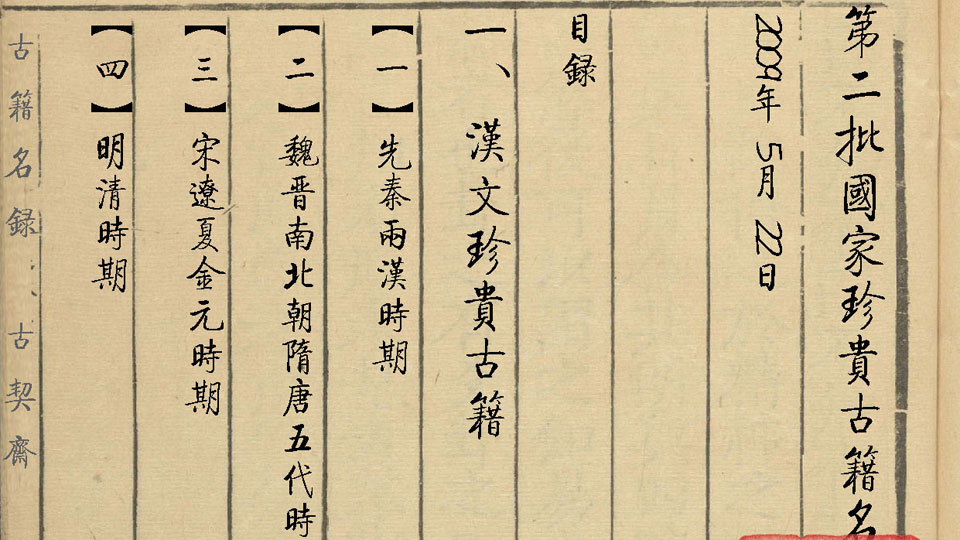 第二批國家珍貴古籍名
2009年 5月 22日
目録
一、漢文珍貴古籍
【一】先秦兩漢時期
【二】魏晋南北朝隋唐五代時
【三】宋遼夏金元時期
【四】明清時期
古籍名録一、古契齋